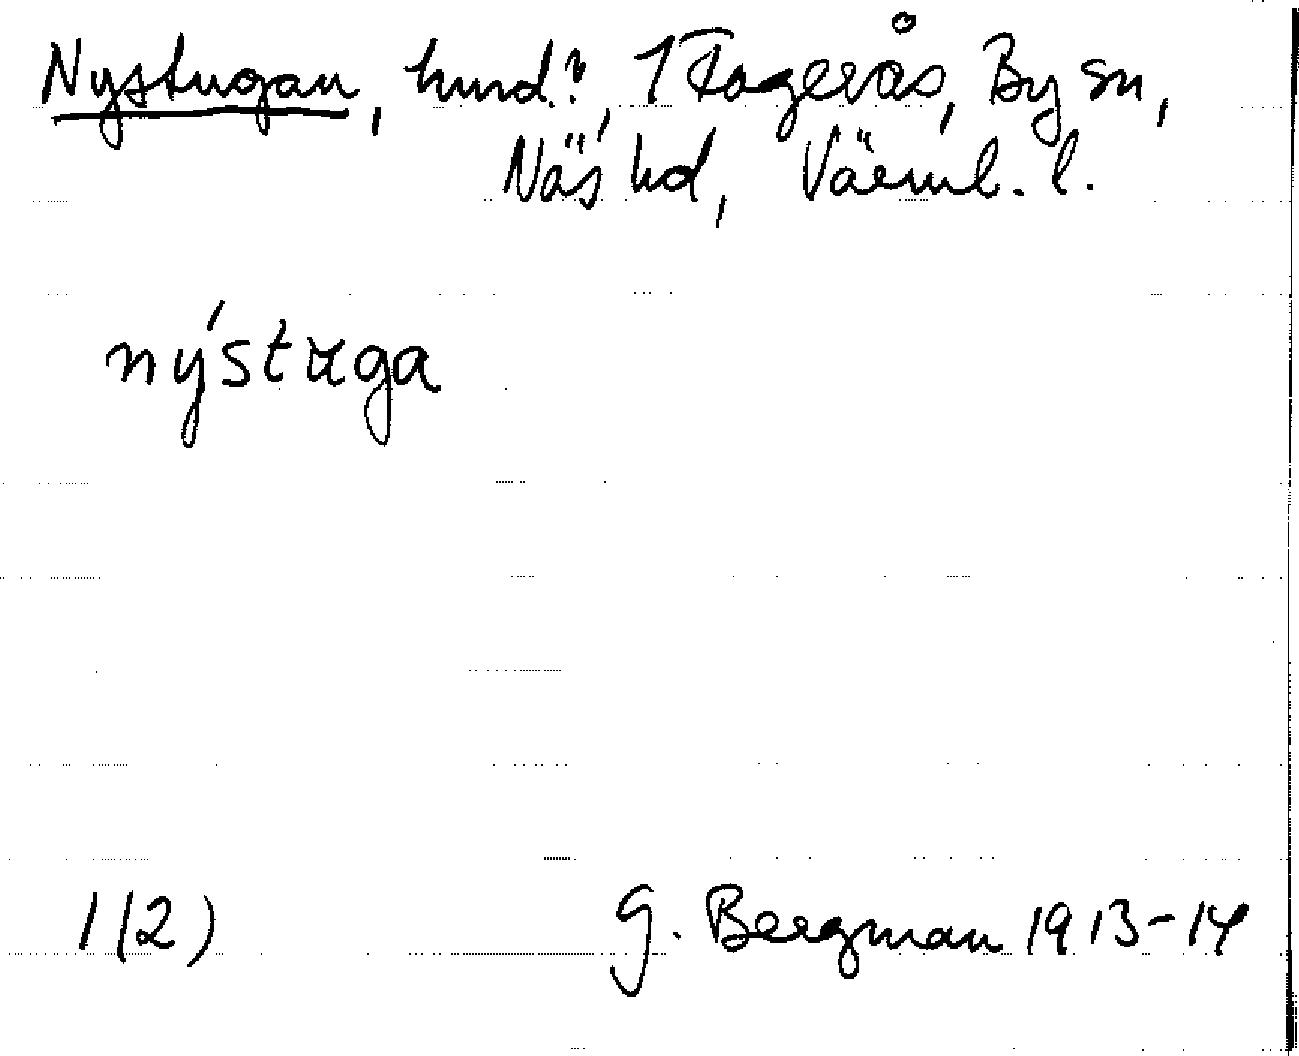 Nystugan, hmd.?, 1 Fagerås, By sn,
Näs hd, Värml. l.
nýstuga
1(2) G. Bergman 1913-14